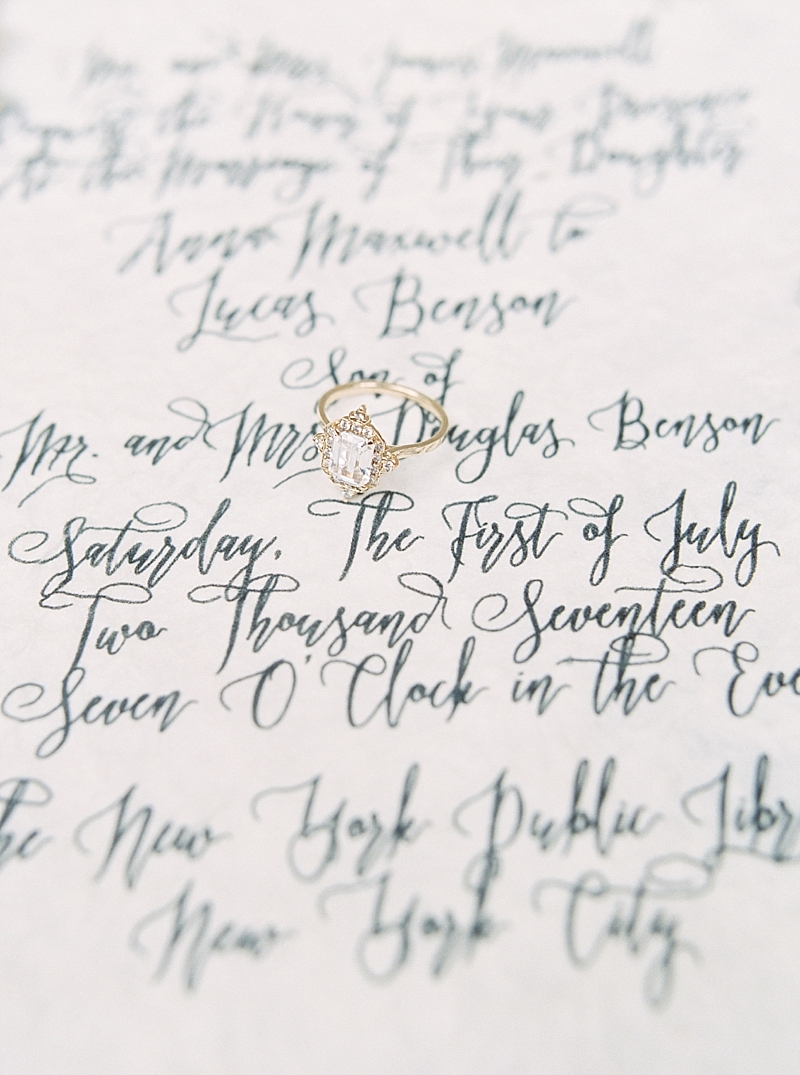 Mr. and Mrs. James Maxwell
the Honor of Your
At the Marriage of Their Daughter
Anna Maxwell to
Lucas Benson
Son of
Mr. and Mrs. Douglas Benson
Saturday, The First of July
Two Thousand Seventeen
Seven O'Clock in the Eve
he New York Public Libr
New York City